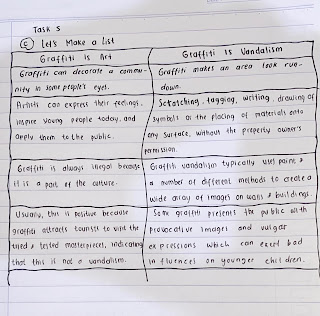 Task 5
C Let's Make a List
Graffiti is Art
Graffiti can decorate a commu-
nity in some people's eyes.
Artists can express their feelings,
inspire young people today, and
apply them to the public.
Graffiti is always illegal because
it is a part of the culture.
Usually, this is positive because
graffiti attracts tourists to visit the
tried & tested masterpieces, indicating
that this is not a vandalism.
Graffiti Is Vandalism
Graffiti makes an area look run-
down.
Scratching, tagging, writing, drawing of
symbols or the placing of materials onto
any surface, without the property owner's
permission.
Graffiti vandalism typically uses paint &
a number of different methods to create a
wide array of images on walls & buildings.
Some graffiti presents the public with
provocative images and vulgar
expressions which can exert bad
influences on younger children.